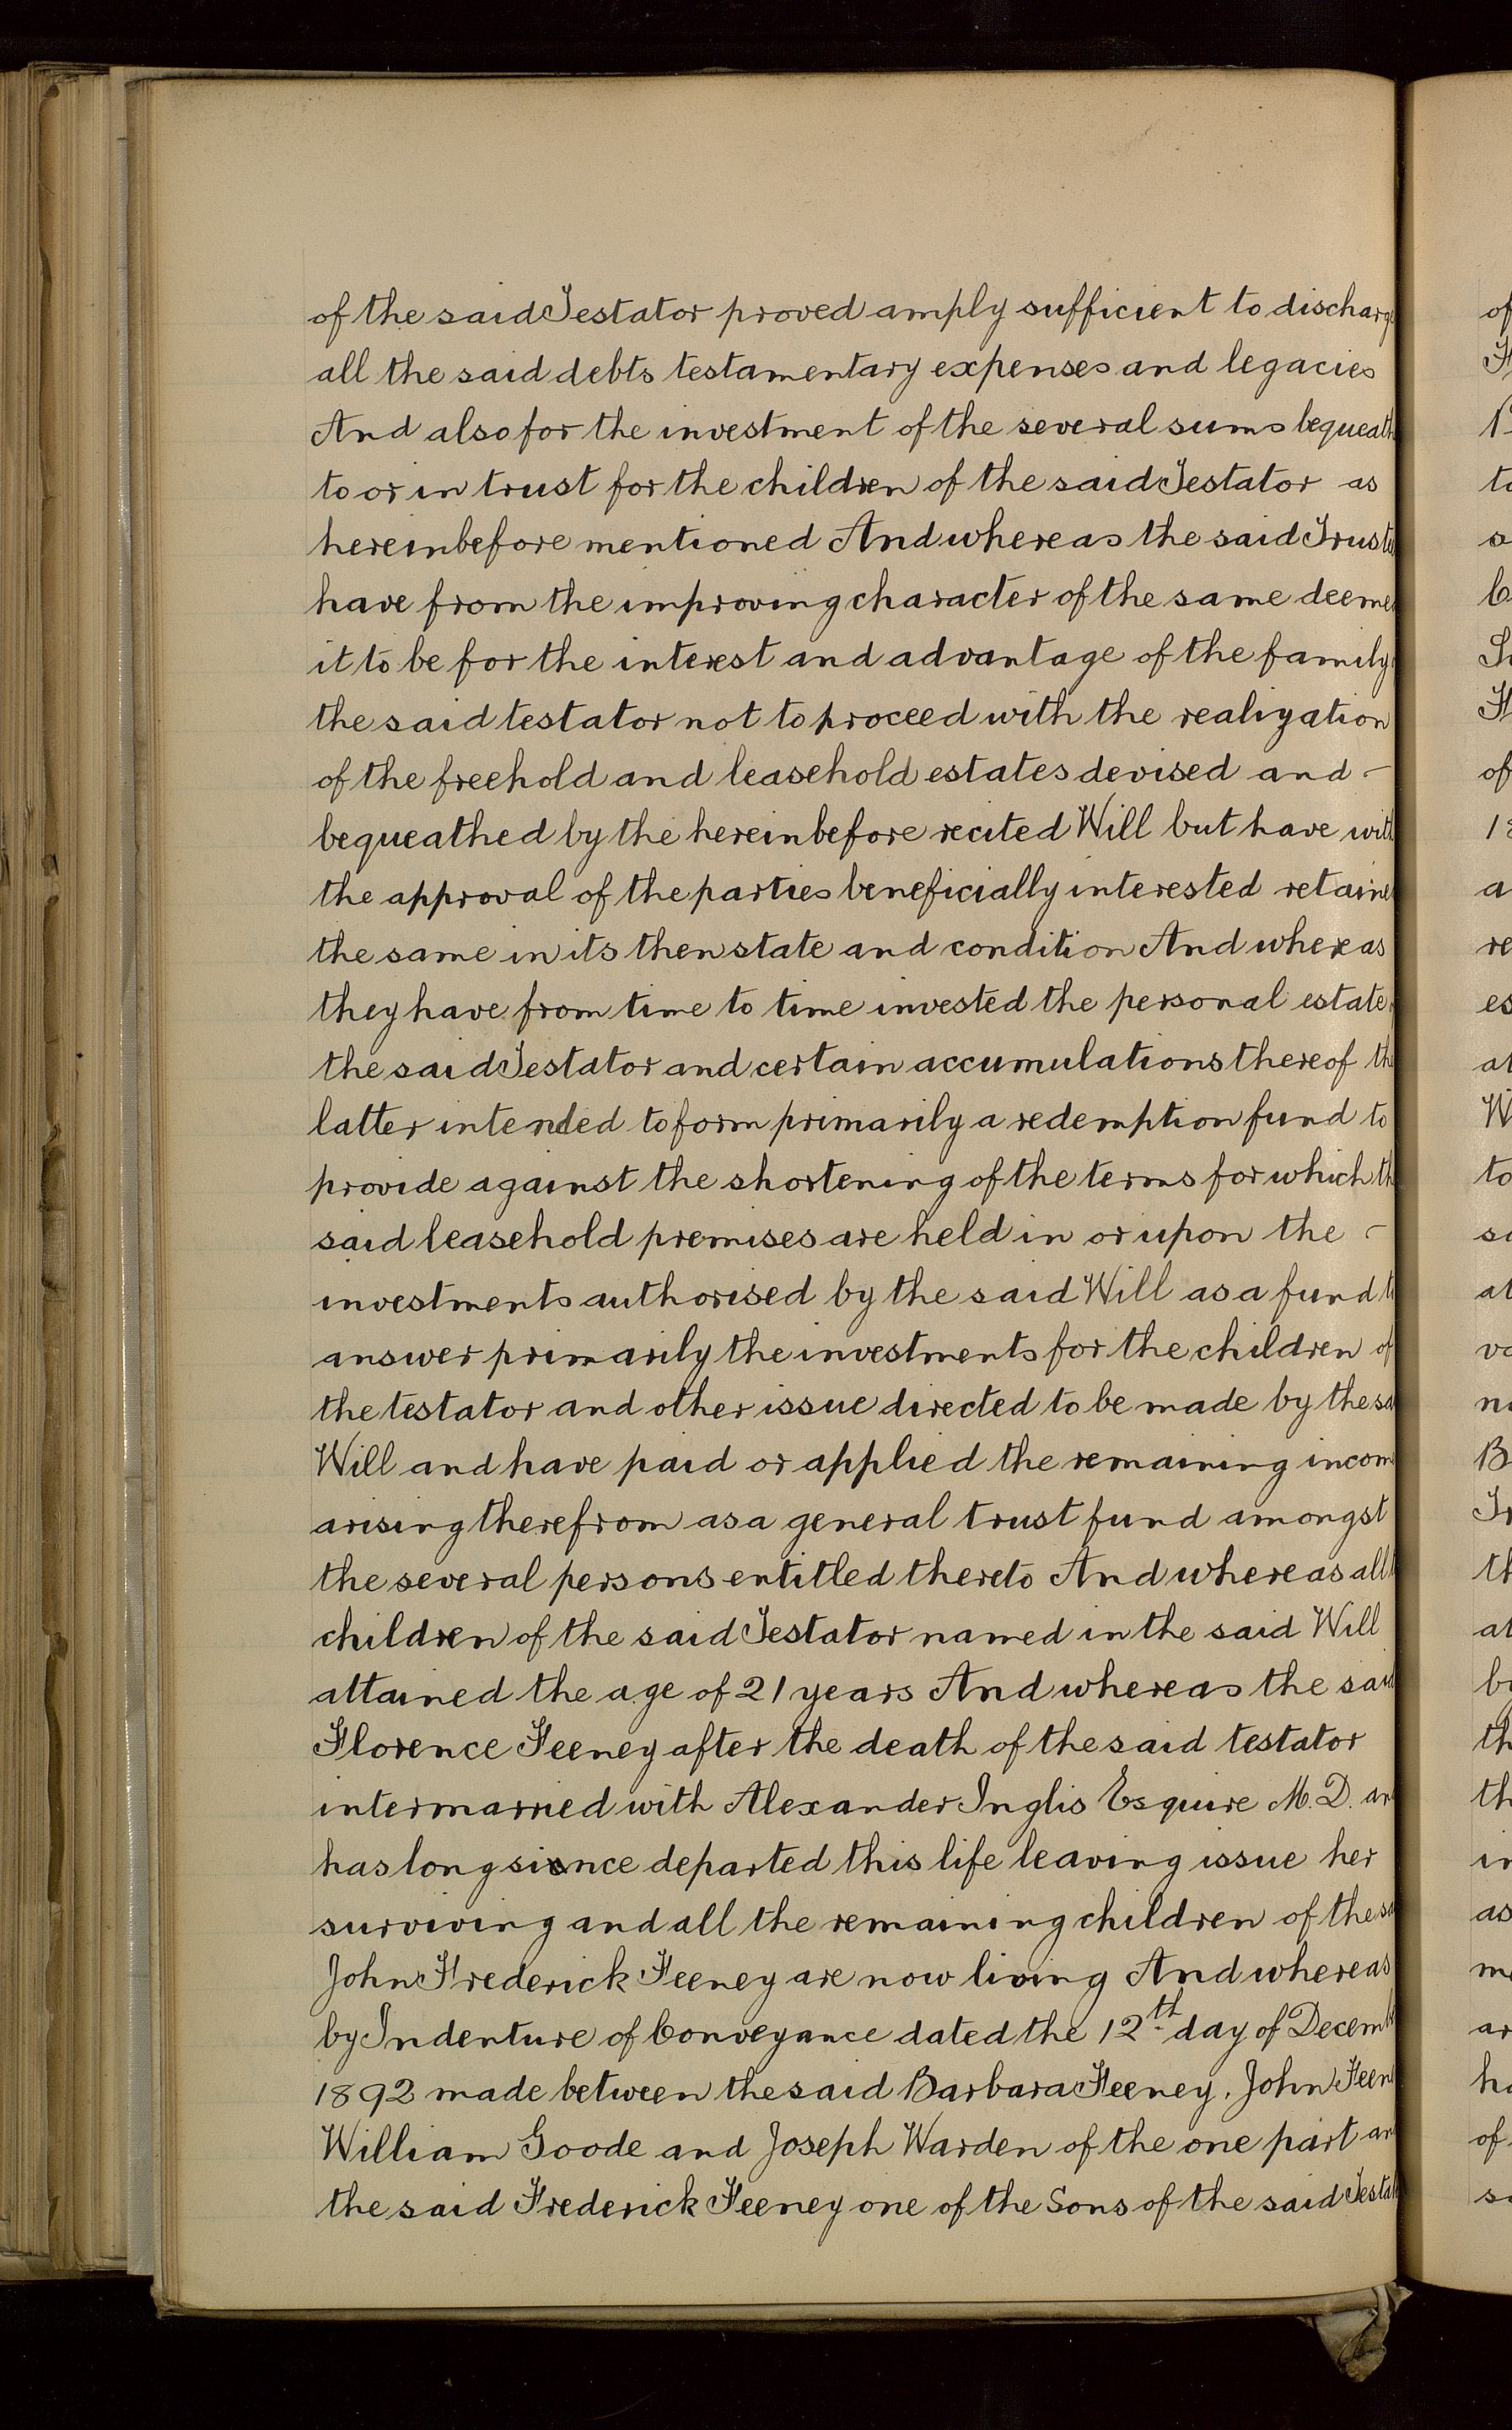 of the said Testator proved amply sufficient to discharg
all the said debts testamentary expenses and legacies
And also for the investment of the several sums bequeath
to or in trust for the children of the said Testator as
hereinbefore mentioned And whereas the said Truste
have from the improving character of the same deeme
it to be for the interest and advantage of the family
the said testator not to proceed with the realization
of the freehold and leasehold estates devised and -
bequeathed by the hereinbefore recited Will but have with
the approval of the parties beneficially interested retaine
the same in its then state and condition And whereas
they have from time to time invested the personal estate
the said Testator and certain accumulations thereof th
latter intended to form primarily a redemption fund to
provide against the shortening of the terms for which th
said leasehold premises are held in or upon the -
investments authorised by the said Will as a fund t
answer primarily the investments for the children of
the testator and other issue directed to be made by the sa
Will and have paid or applied the remaining incom
arising therefrom as a general trust fund amongst
the several persons entitled thereto And whereas all
children of the said Testator named in the said Will
attained the age of 21 years And whereas the said
Florence Feeney after the death of the said testator
intermarried with Alexander Inglis Esquire M.D. an
has long since departed this life leaving issue her
surviving and all the remaining children of the sa
John Frederick Feeney are now living And whereas
by Indenture of Conveyance dated the 12th day of Decemb
1892 made between the said Barbara Feeney, John Feen
William Goode and Joseph Warden of the one part an
the said Frederick Feeney one of the Sons of the said Testat